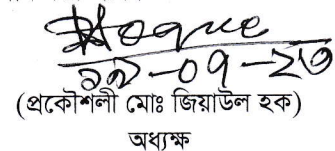 Hoque
১৯-০৭-২৩
(প্রকৌশলী মোঃ জিয়াউল হক)
অধ্যক্ষ